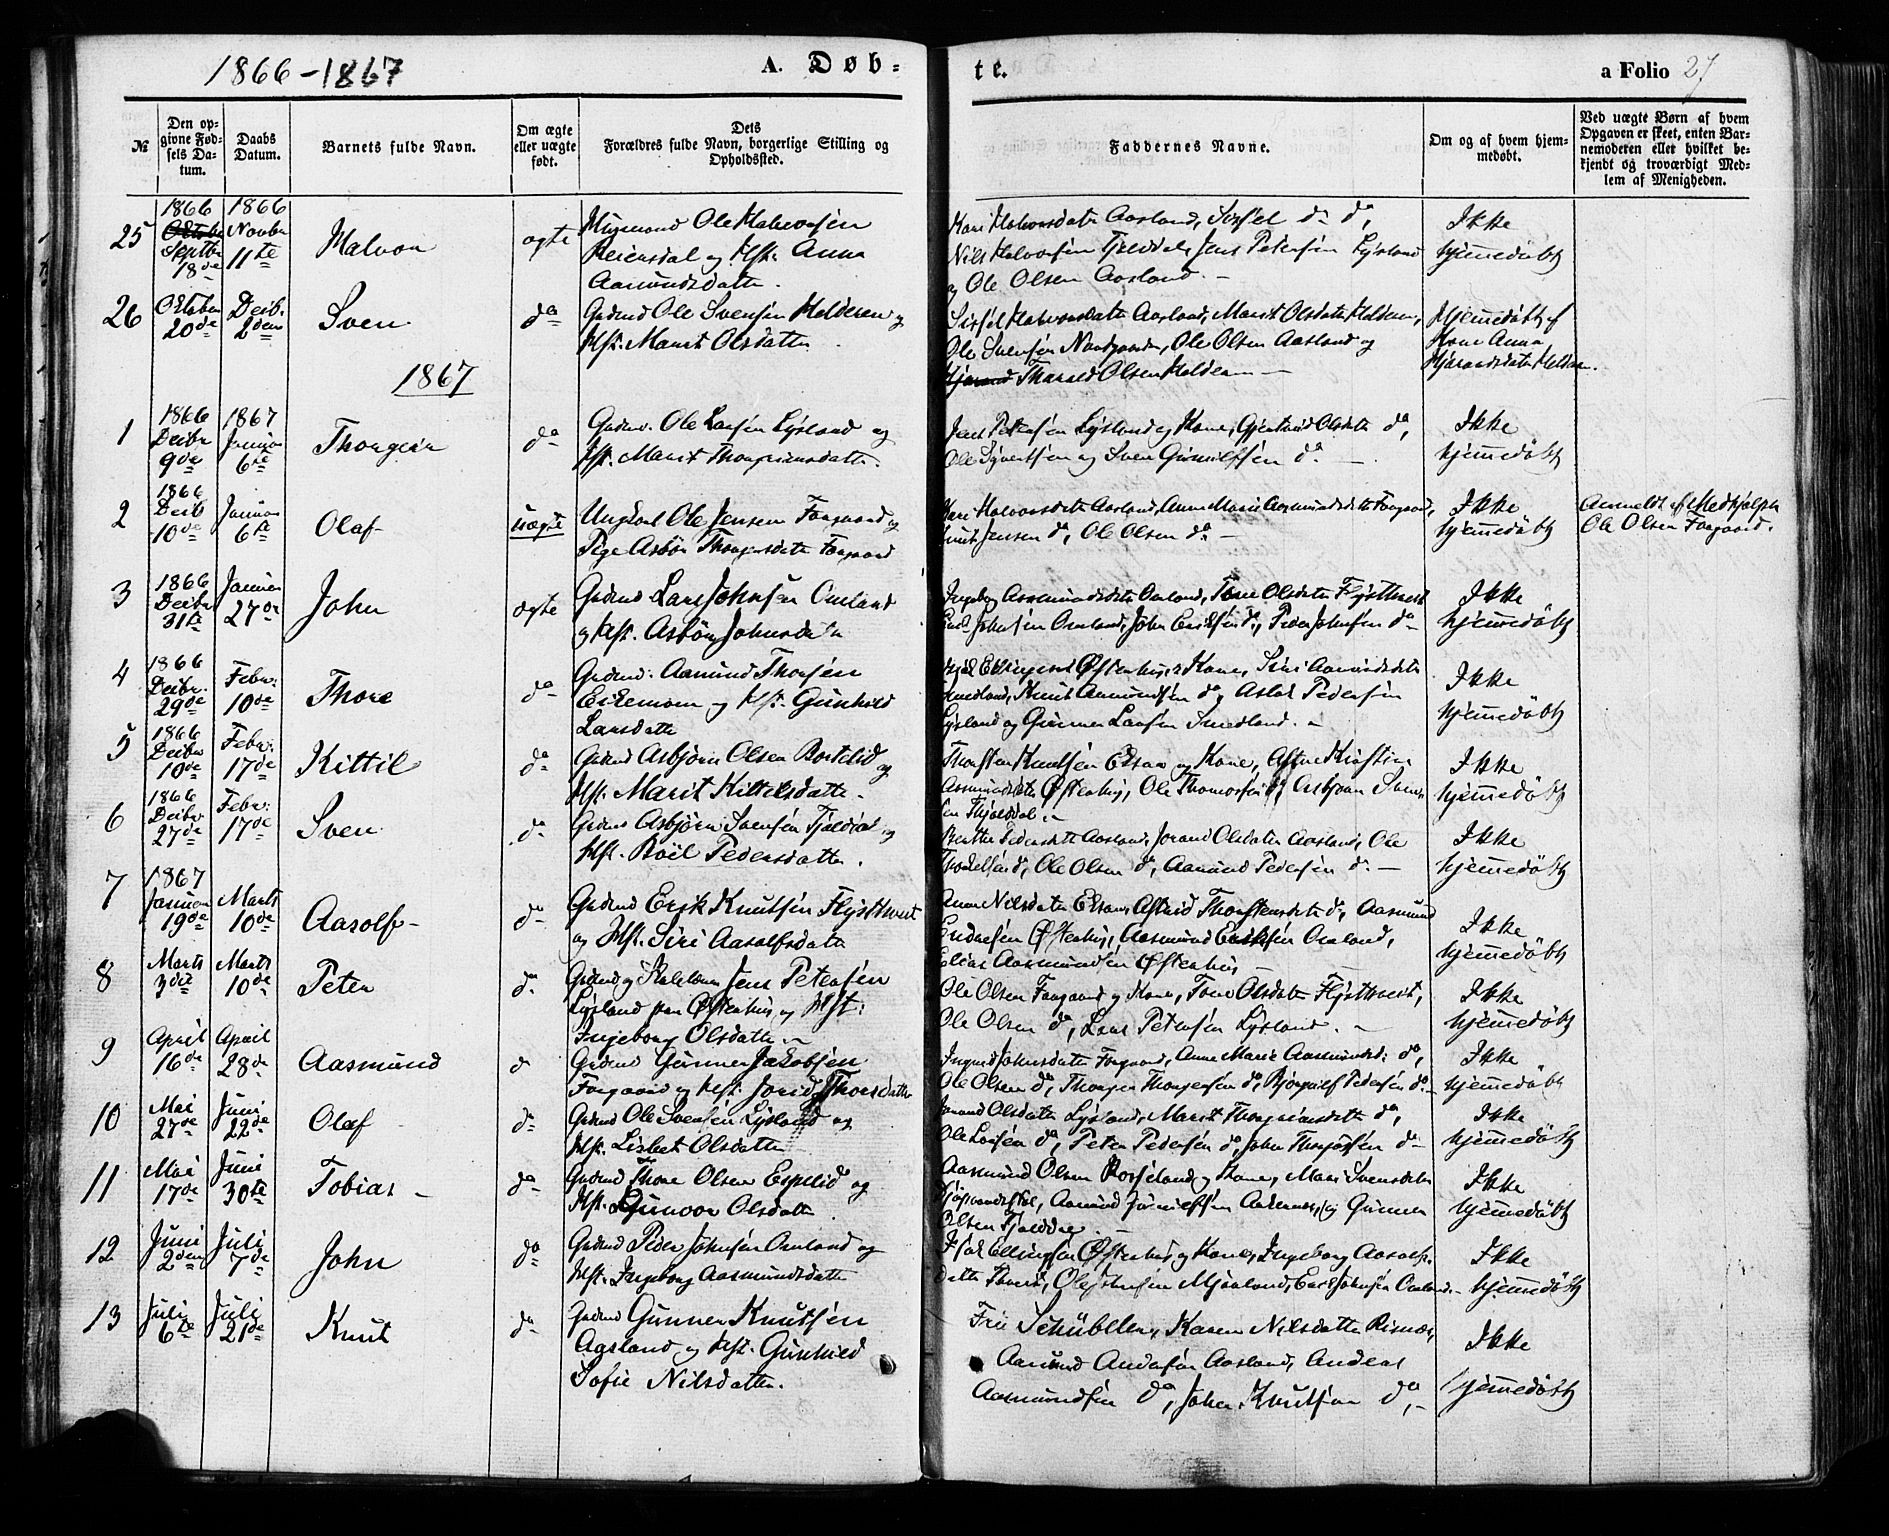 1866-1867
A. Døb-
te.
a Folio 27
№
Den opgivne Fødsels Datum.
Daabs Datum.
Barnets fulde Navn.
Om ægte eller uægte født.
Dets Forældres fulde Navn, borgerlige Stilling og Opholdssted.
Faddernes Navne.
Om og af hvem hjemmedøbt.
Ved uægte Børn af hvem Opgaven er skeet, enten Barnemoderen eller hvilket bekjendt og troværdigt Medlem af Menigheden.
25
1866 Septbr 18de
1866 Novbr 11te
Halvor
ægte
Ole Halvorsen
og Hst. Anna
Aamundsdatter.
Kari Halvorsdatter Aasland, Sissel do do,
Nils Halvorsen Tjelddal, Jens Petersen Lysland
og Ole Olsen Aasland.
Ikke hjemmedøbt
26
Oktober 20de
Decbr. 2den
Sven
do
Grdmd Ole Svensen Helderen og
Hst. Marit Olsdatter
Sissel Halvorsdatter Aasland, Marit Olsdatter Helderen,
Ole Svensen, Ole Olsen Aasland og
Tharald Olsen Helderen
Hjemmedøbt af Kone Anna
1867
1
1866 Decbr 9de
1867 Januar 6te
Thorgeir
do
Grdmd. Ole Larsen Lysland og
Hst. Marit Thorgrimsdatter.
Jens Petersen Lysland og Kone, Gjertrud Olsdatter do,
Ole Syvertsen og Sven Gunulfsen do.
Ikke hjemmedøbt
2
1866 Decbr 10de
Januar 6te
Olaf
uægte
Ungkarl Ole Jensen Faagaard og
Pige Asbør Thorgersdatter Faagaard
Kari Halvorsdatter Aasland, Anne Marie Aasmundsdatter Faagaard,
Knut Jensen do, Ole Olsen do.
Ikke hjemmedøbt
Anmeldt af Medhjælper
Ole Olsen Faagaard.
3
1866 Decbr 31te
Januar 27de
John
ægte
Grdmd Lars Johnsen Omland
og Hst. Asbør Johnsdatter
Ingeborg Aasmundsdatter Omland, Tone Olsdatter Flystveit
Johnsen Omland, John Eriksen do, Peder Johnsen do
Ikke hjemmedøbt
4
1866 Decbr. 29de
Febr. 10de
Thore
do
Grdmd. Aamund Thorsen
Eikemoen og Hst. Gunhild
Larsdatter
Ellingsen Østerhus, Kone, Siri Aamundsdatter
Smedland, Knut Aamundsen do, Aslak Pedersen
Lysland og Gunner Larsen Smedland.
Ikke hjemmedøbt
5
1866 Decbr 10de
Febr. 17de
Kittil
do
Grdmd Asbjørn Olsen Bortelid og
Hst. Marit Kittelsdatter.
Thorsten Knutsen Ekraa og Kone,
Aasmundsdatter Østerhus, Ole Thomassen do, Asbjørn Svensen Tjelddal.
Ikke hjemmedøbt
6
1866 Decbr 27de
Febr. 17de
Sven
do
Grdmd Asbjørn Svensen Tjelddal og
Hst. Boil Pedersdatter.
Berthe Pedersdatter Aasland, Jorand Olsdatter Aasland, Ole
do, Ole Olsen do, Aamund Pedersen do.
Ikke hjemmedøbt
7
1867 Januar 19de
Marts 10de
Aasolf
do
Grdmd Erik Knutsen Flystveit
og Hst. Siri Aasolfsdatter
Anne Nilsdatter Ekraa, Astrid Thorstensdatter do, Aasmund
Østerhus, Aasmund Eriksen Omland,
Elias Aasmundsen Østerhus
Ikke hjemmedøbt
8
Marts 3die
Marts 10de
Peter
do
Grdmd og Skolelærer Jens Petersen
Lysland paa Østerhus og Hst.
Ingeborg Olsdatter
Ole Olsen Faagaard og Kone, Tone Olsdatter Flystveit,
Ole Olsen do, Lars Petersen Lysland.
Ikke hjemmedøbt
9
April 16de
April 28de
Aasmund
do
Grdmd Gunner Jakobsen
Faagaard og Hst. Jorid Thorsdatter
Ingrid Johnsdatter Faagaard, Anne Marie Aasmundsd. do,
Ole Olsen do, Thorger Thorgersen do, Bjørgulf Pedersen do.
Ikke hjemmedøbt
10
Mai 27de
Juni 22de
Olaf
do
Grdmd Ole Svensen Lysland og
Hst. Lisbet Olsdatter
Jorand Olsdatter Lysland, Marit Thorgrimsdatter do,
Ole Larsen do, Peter Pedersen do, John do
Ikke hjemmedøbt
11
Mai 17de
Juni 30te
Tobias
do
Grdmd Thore Olsen Espelid og
Hst. Gunvor Olsdatter
Aasmund Olsen Rosseland og Kone, Mari Svensdatter
Aamund og Gunner
Olsen Tjelddal
Ikke hjemmedøbt
12
Juni 2den
Juli 7de
John
do
Grdmd Peder Johnsen Omland og
Hst. Ingeborg Aasmundsdatter
Ellingsen Østerhus og Kone, Ingeborg Aasolfsdatter, Ole Mjaaland, Erik Johnsen Omland.
Ikke hjemmedøbt
13
Juli 6te
Juli 21de
Knut
do
Grdmd Gunner Knutsen
Aasland og Hst. Gunhild
Sofie Nilsdatter.
Fru Schübeler, Karen Nilsdatter Risnæs,
Aamund Andersen Aasland, Andeas
Aasmundsen do, John Knutsen do,
Ikke hjemmedøbt